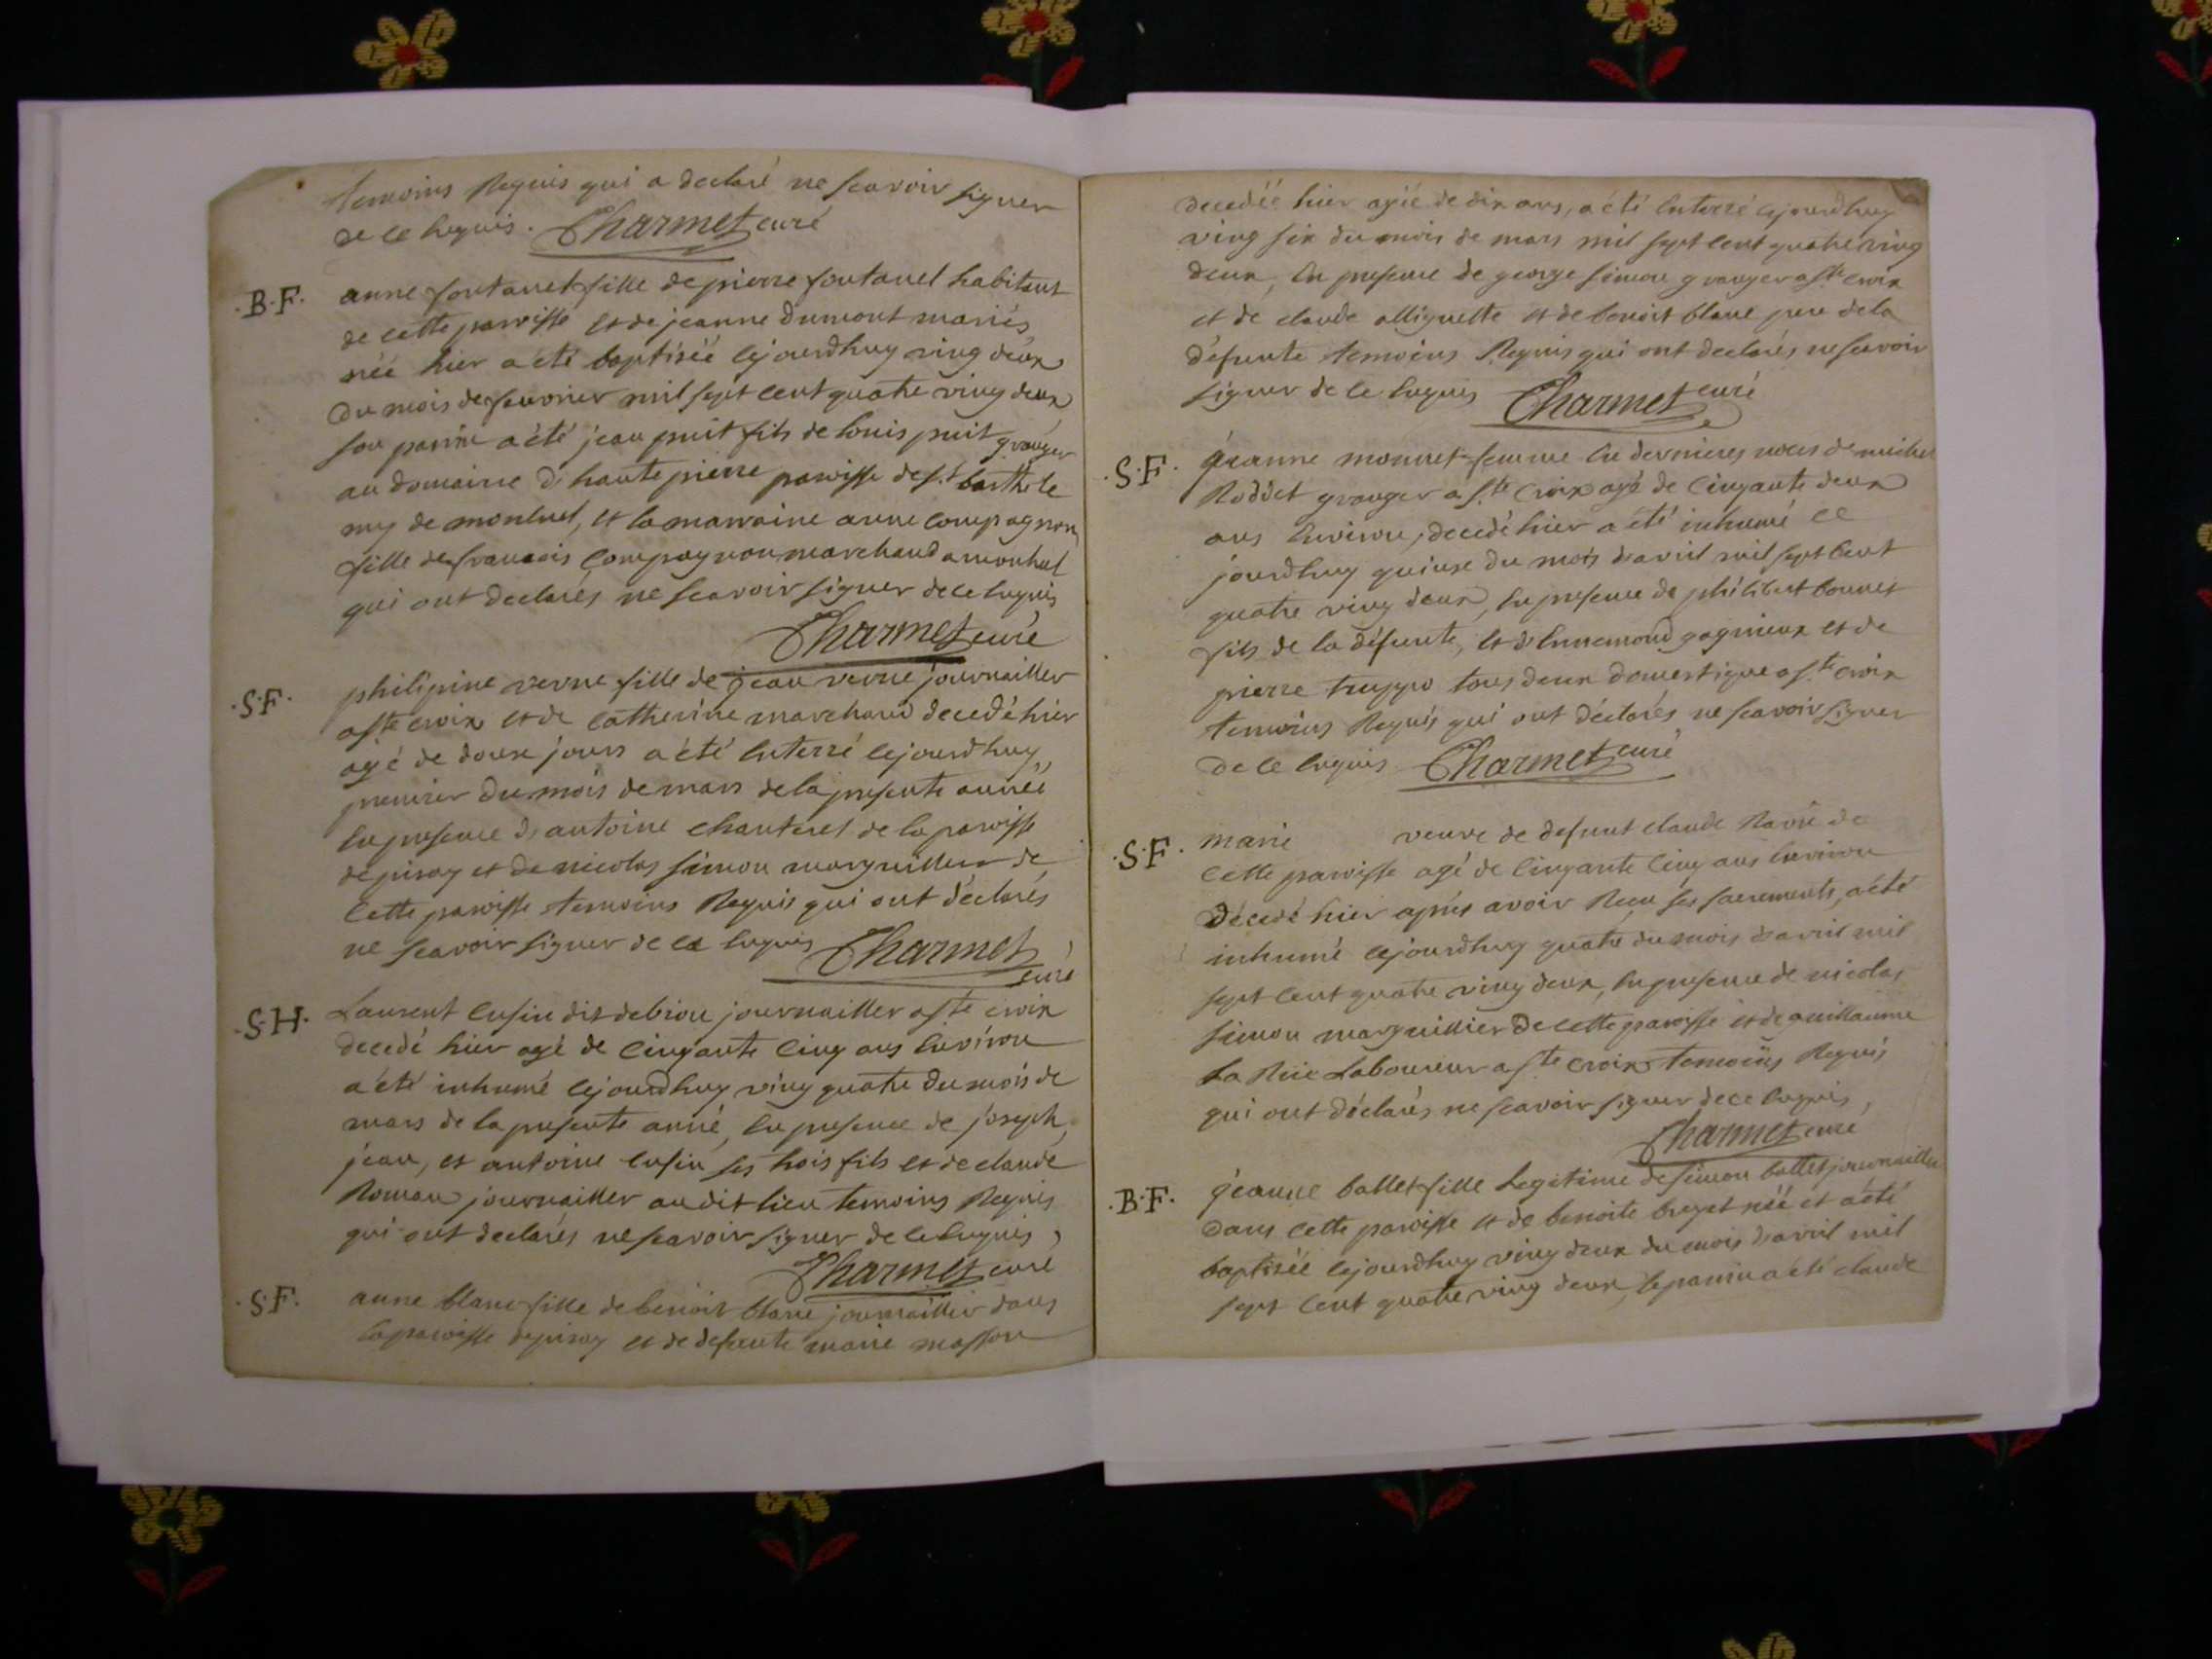 temoins Requis qui a declaré ne scavoir signer
de ce Enquis. Charmet curé
.B.F. anne fontanel fille de pierre fontanel habitant
de cette paroisse et de jeanne dumont mariés
née hier a eté baptisée cejourdhuy ving deux
du mois de feuvrier mil sept cent quatre ving deux
son parrin a été jean puit fils de louis puit granger
au domaine de haute pierre paroisse de s.t barthele
my de montluel, et la marraine anne compagnon
fille de francois compagnon marchand a montluel
qui ont declarés ne scavoir signer de ce Enquis
Charmet curé
.S.F. philipine verne fille de jean verne journailler
a ste croix et de catherine marchand decedé hier
agé de douse jours a été enterré cejourdhuy
premier du mois de mars de la presente année
en presence de antoine chanterel de la paroisse
de pisay et de nicolas simon marguillier de
cette paroisse temoins Requis qui ont déclarés
ne scavoir signer de ce Enquis Charmet
curé
.S.H. Laurent cusin dit debiou journailler a ste croix
decedé hier agé de cinqante cinq ans Environ
a été inhumé cejourdhuy ving quatre du mois de
mars de la presente anné, En presence de joseph,
jean, et antoine cusin ses trois fils et de claude
Roman journailler au dit lieu temoins Requis
qui ont declarés ne scavoir signer de ce Enquis,
Charmet curé
.S.F. anne blanc fille de benoit blanc journaillier dans
la paroisse de pisay et de defunte marie masson
decedée hier agée de dix ans, a été Enterré cejourdhuy
ving six du mois de mars mil sept cent quatre ving
deux, En presence de george simon granger a ste croix
et de claude alliguette et de benoit blanc pere de la
défunte temoins Requis qui ont declarés ne scavoir
signer de ce Enquis Charmet curé
.S.F. jeanne monnet femme En dernieres noces de michel
Roddet granger a s.te Croix agé de Cinqante deux
ans Environ, decedé hier a été inhumé ce
jourdhuy quinse du mois d'avril mil sept Cent
quatre ving deux, En presence de philibert bonnet
fils de la défunte, et d'Ennemond gagnieux et de
pierre truppo tous deux domestique a s.te croix
temoins Requis qui ont déclarés ne scavoir signer
de ce Enquis Charmet curé
.S.F. marie veuve de defunt claude Ravie de
cette paroisse agé de Cinqante Cinq ans Environ
décedé hier aprés avoir Recu ses sacrements, a été
inhumé cejourdhuy quatre du mois d'avril mil
sept cent quatre ving deux, En presence de nicolas
simon marguillier de cette paroisse et de guillaume
La Rue Laboureur a s te croix temoins Requis
qui ont déclarés ne scavoir signer de ce Enquis,
Charmet curé
.B.F. jeanne ballet fille Legitime de simon ballet journailler
dans cette paroisse et de benoite breyet née et a été
baptisée cejourdhuy ving deux du mois d'avril mil
sept cent quatre ving deux, le parrin a été claude